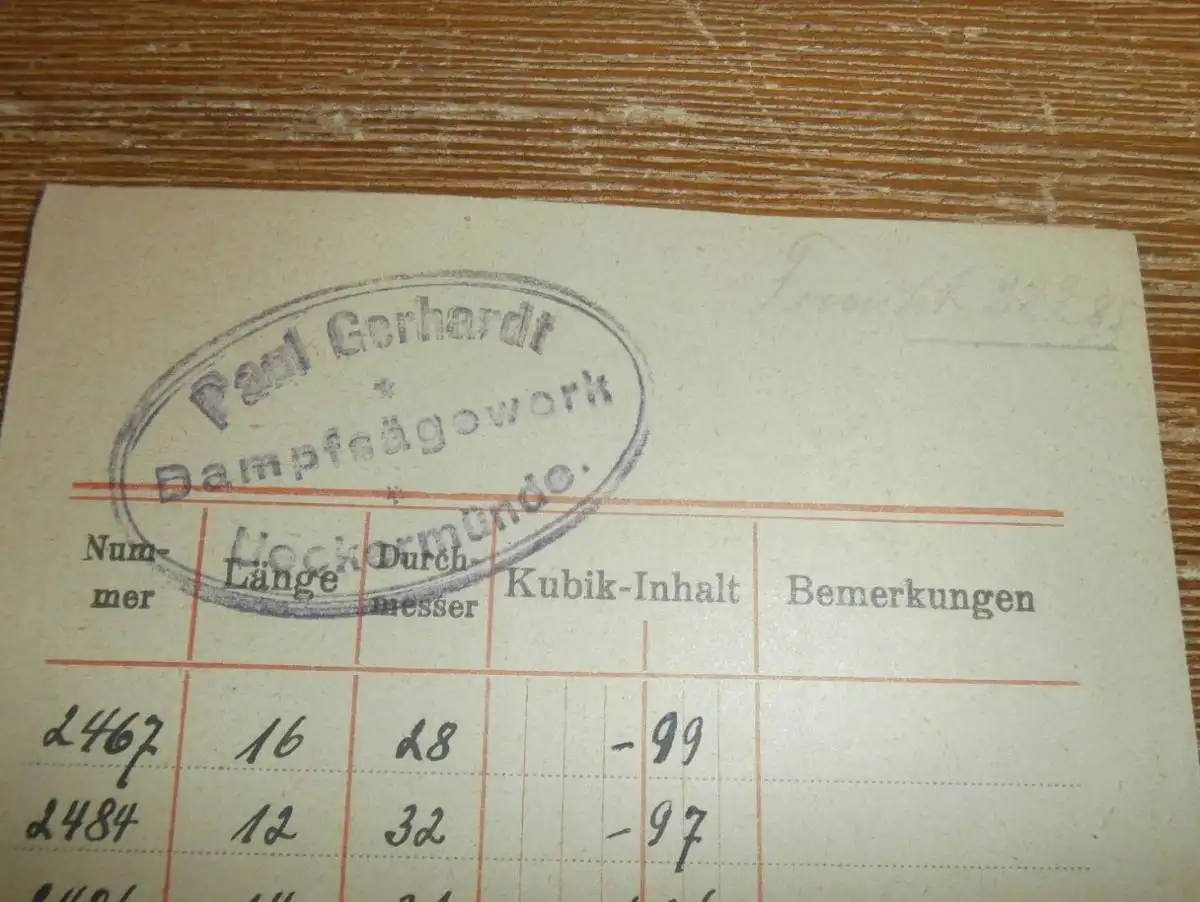 Paul Gerhardt
*
Dampfsägewerk
*
Ueckermünde.
Num-
mer
Länge
Durch-
messer
Kubik-Inhalt
Bemerkungen
2467 16 28 -99
2484 12 32 -97